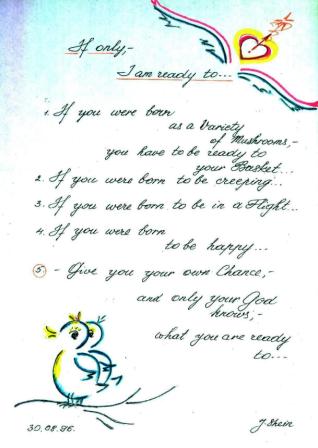 If only,-
I am ready to...
1. If you were born
as a Variety
of Mushrooms,-
you have to be ready to
your Basket...
2. If you were born to be creeping...
3. If you were born to be in a Flight...
4. If you were born
to be happy...
5. - Give you your own Chance,-
and only your God
knows,-
what you are ready
to...
30.08.96.
J Shein